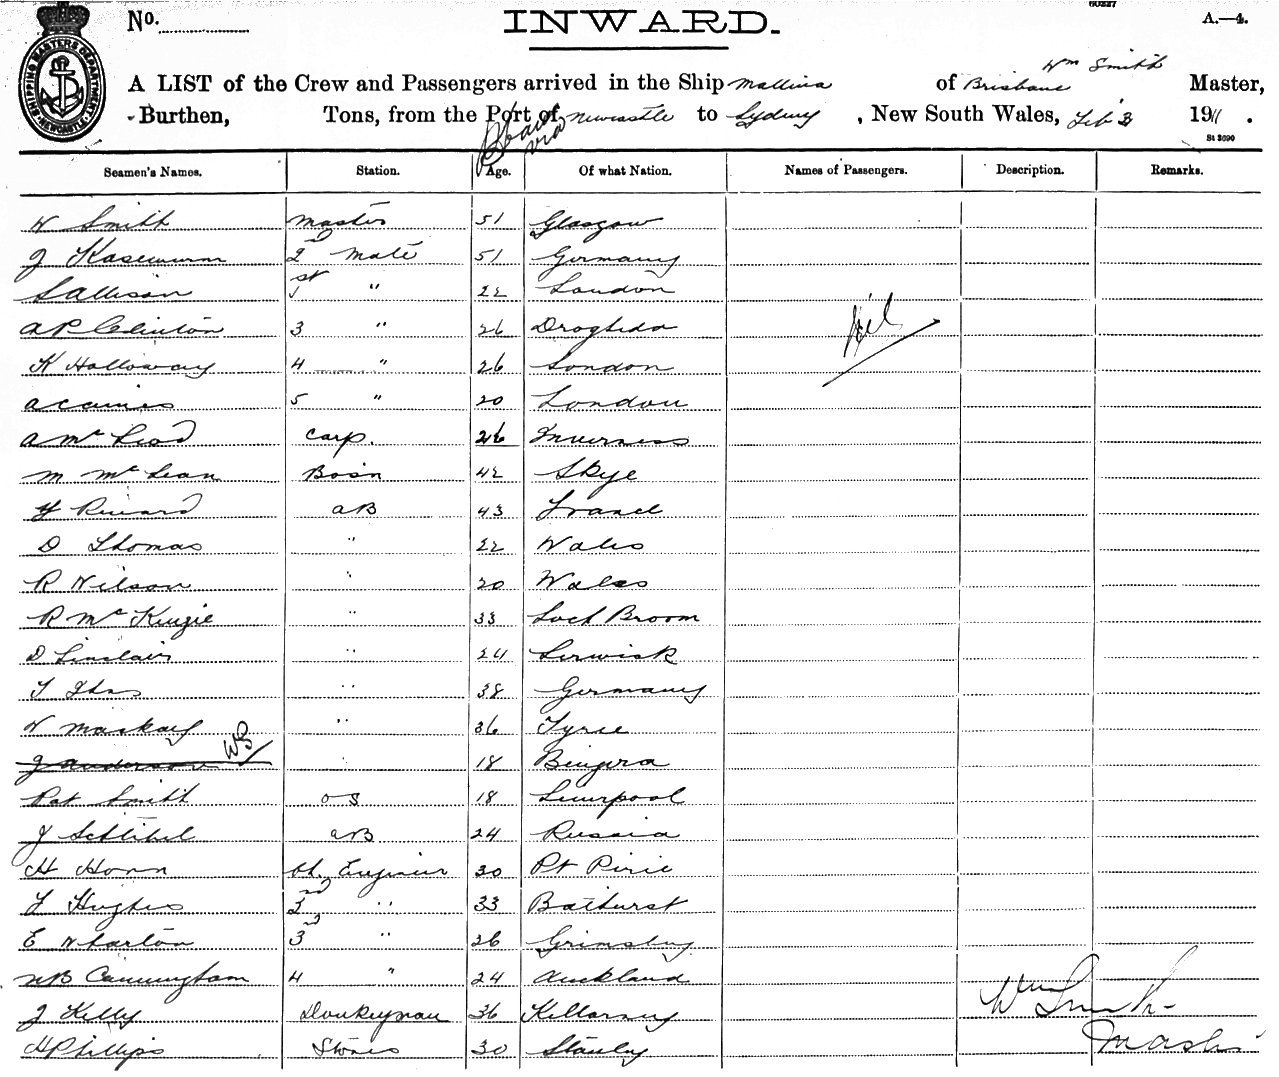 No.
INWARD.
60227
A.—4.
SHIPPING MASTERS DEPARTMENT NEWCASTLE
Wm Smith
A LIST of the Crew and Passengers arrived in the Ship Mallina of Brisbane Master,
Burthen, Tons, from the Port of Newcastle to Sydney, New South Wales, Feb 3 1911.
via
St 3690
Seamen's Names. Station. Age. Of what Nation. Names of Passengers. Description. Remarks.
W Smith Master 51 Glasgow
J Kasewurm 2nd Mate 51 Germany
S Allison 1st " 22 London
A P Clinton 3 " 26 Drogheda
Nil
K Holloway 4 " 26 London
A Caines 5 " 20 London
A McLeod Carp. 26 Inverness
M McLean Bosn 42 Skye
Y Rivard AB 43 France
D Thomas " 22 Wales
R Wilson " 20 Wales
R McKenzie " 33 Loch Broom
D Sinclair " 24 Lerwick
T " 38 Germany
W Mackay " 36 Tyree
J Anderson WS " 18 Bingera
Pat Smith OS 18 Liverpool
J AB 24 Russia
H Horn Ch. Engineer 30 Pt Pirie
F Hughes 2nd " 33 Bathurst
E Wharton 3rd " 26 Grimsby
W B Cunningham 4 " 24 Auckland
J Kelly Donkeyman 36 Killarney
H Phillips Stores 30 Stanley
Wm Smith
Master